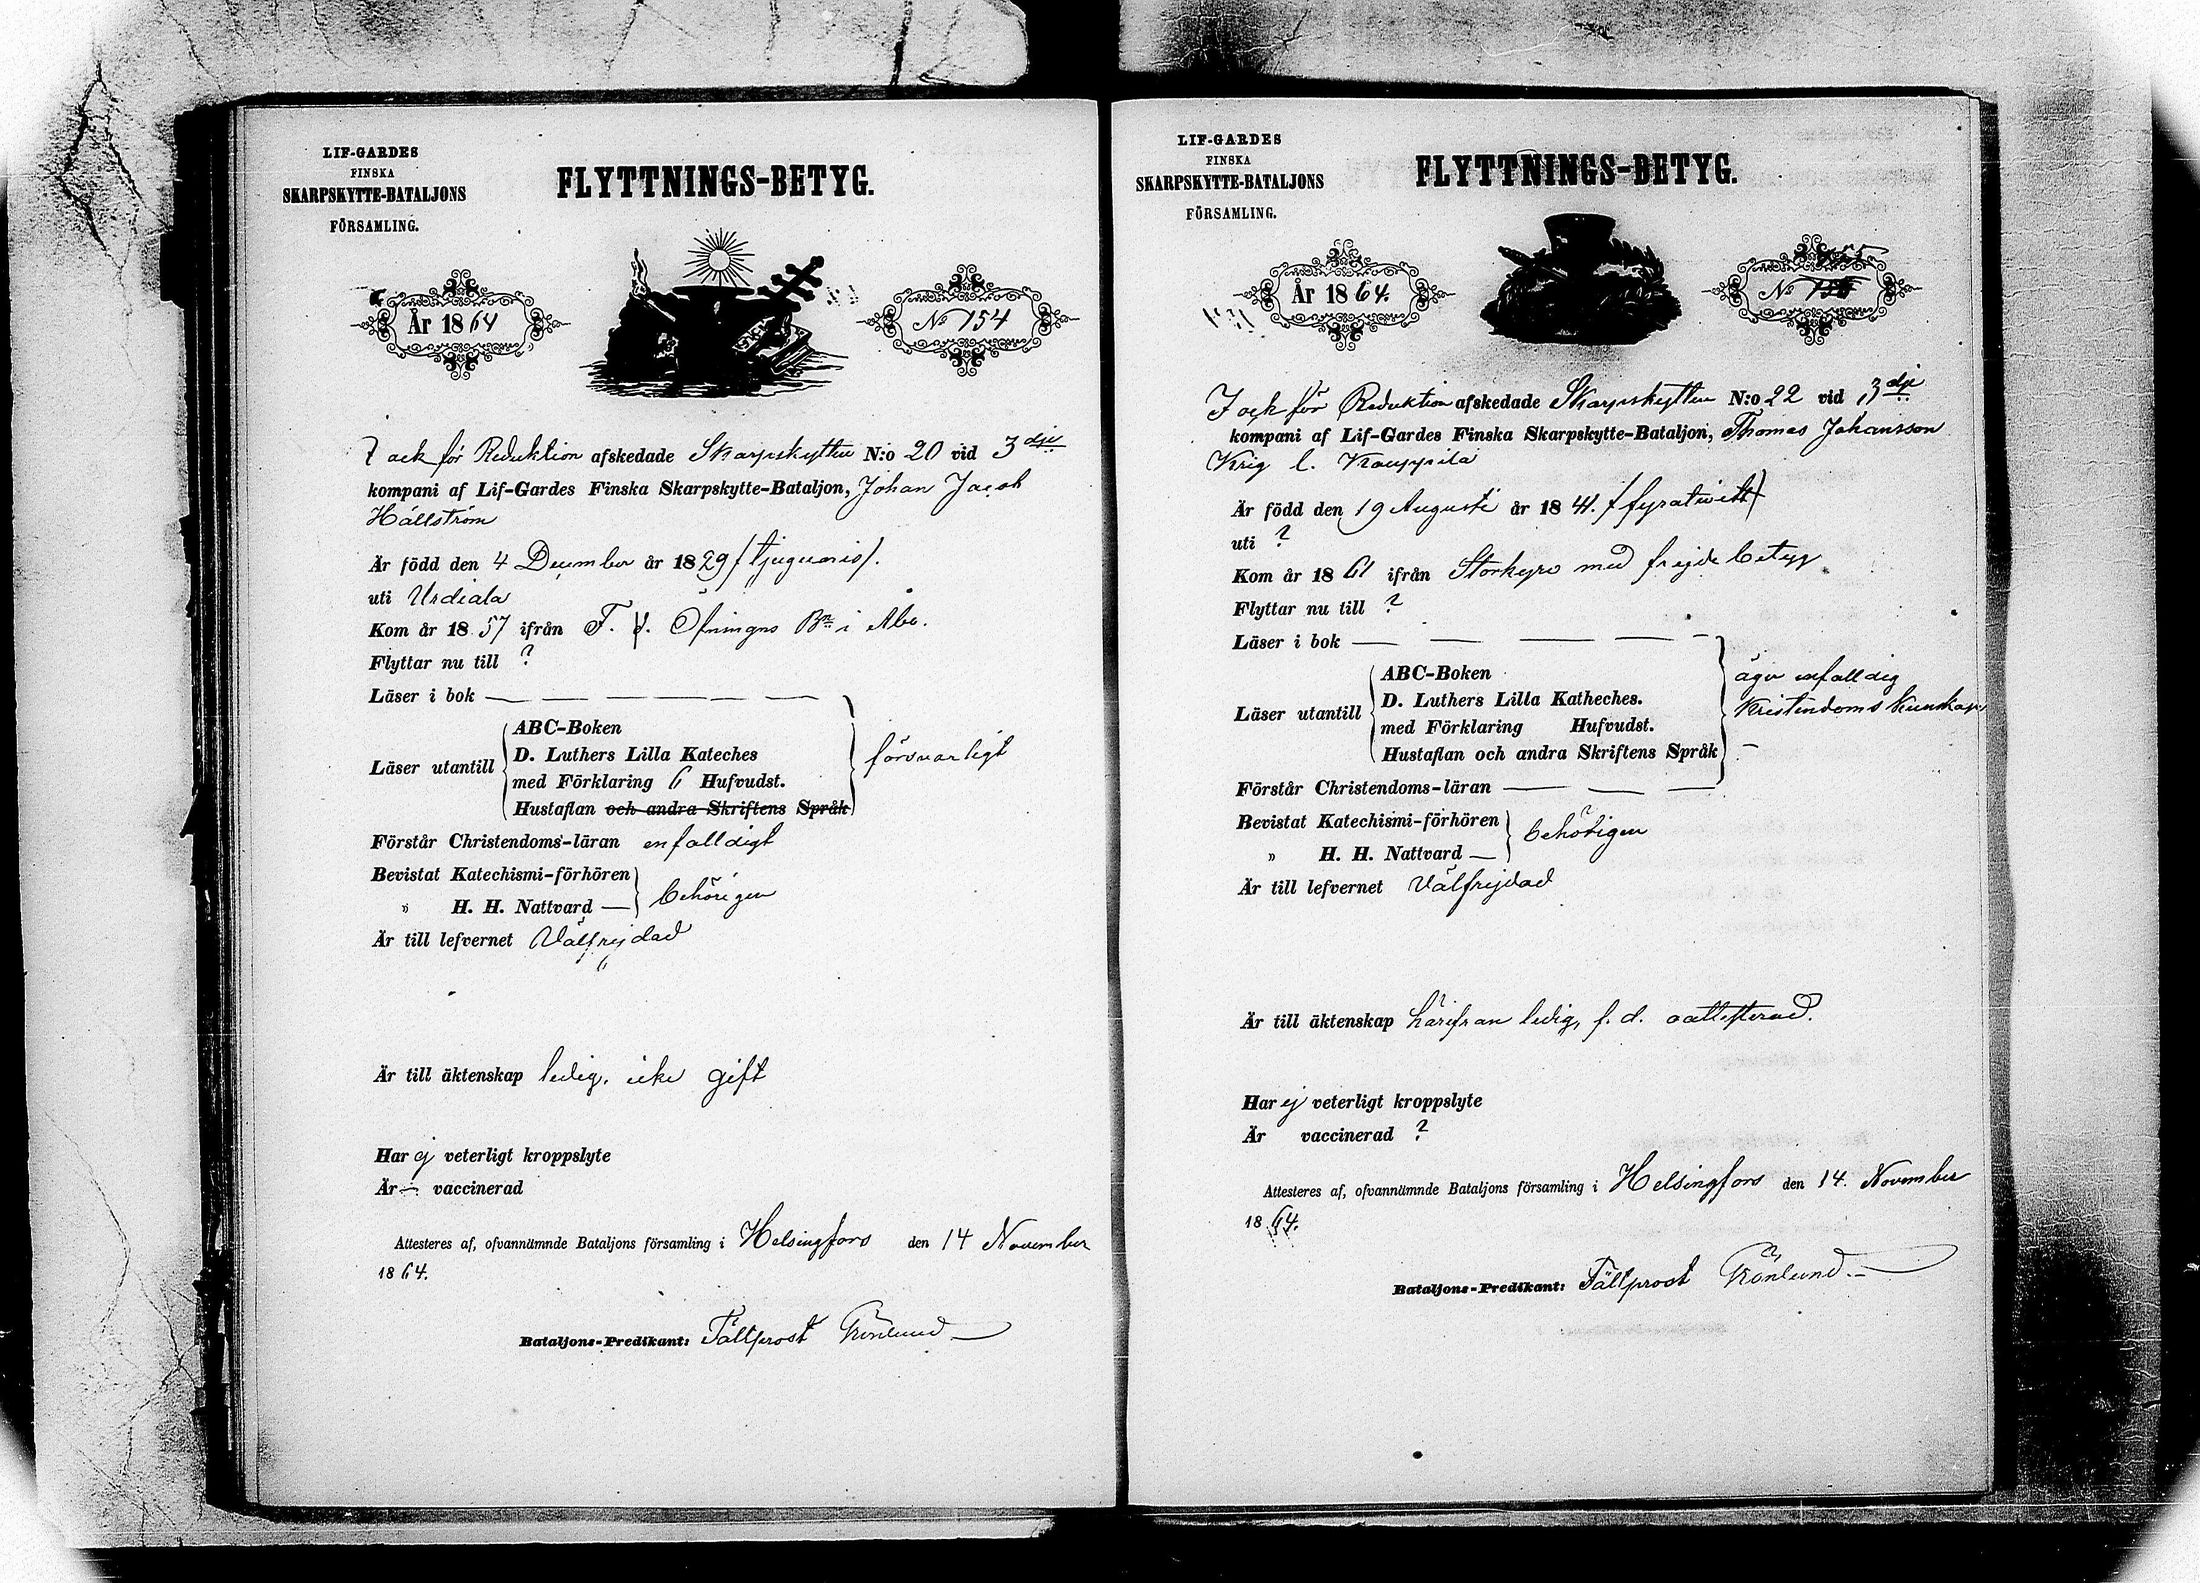 LIF-GARDES
FINSKA
SKARPSKYTTE-BATALJONS
FÖRSAMLING.
FLYTTNINGS-BETYG.
År 1864
No 154
och för Reduktion afskedade Skarpskytten N:o 20 vid 3dje
kompani af Lif-Gardes Finska Skarpskytte-Bataljon, Johan Jacob
Hällström
Är född den 4 December år 1829 / tjuguonio /.
uti Urdiala
Kom år 1857 ifrån F. Öfnings Bn i Åbo.
Flyttar nu till ?
Läser i bok — — — — — —
Läser utantill
ABC-Boken
D. Luthers Lilla Kateches
med Förklaring 6 Hufvudst.
Hustaflan och andra Skriftens Språk
försvarligt
Förstår Christendoms-läran enfalldigt
Bevistat Katechismi-förhören
» H. H. Nattvard —
behörigen
Är till lefvernet Välfrejdad
Är till äktenskap ledig, icke gift
Har ej veterligt kroppslyte
Är — vaccinerad
Attesteres af, ofvannämnde Bataljons församling i Helsingfors den 14 November
1864.
Bataljons-Predikant: Fältprost Grönlund
LIF-GARDES
FINSKA
SKARPSKYTTE-BATALJONS
FÖRSAMLING.
FLYTTNINGS-BETYG.
År 1864.
155
No
och för Reduktion afskedade Skarpskytten N:o 22 vid 3dje
kompani af Lif-Gardes Finska Skarpskytte-Bataljon, Thomas Johansson
Krig l. Kauppila
Är född den 19 Augusti år 1841. / fyratioett /
uti ?
Kom år 1861 ifrån Storkyro med frejdebetyg
Flyttar nu till ?
Läser i bok — — — — —
Läser utantill
ABC-Boken
D. Luthers Lilla Katheches.
med Förklaring Hufvudst.
Hustaflan och andra Skriftens Språk
äger enfalldig
Kristendoms kunskap
—
Förstår Christendoms-läran — — —
Bevistat Katechismi-förhören
» H. H. Nattvard —
behörigen
Är till lefvernet Välfrejdad
Är till äktenskap härifrån ledig, f. d. oattesterad.
Har ej veterligt kroppslyte
Är vaccinerad ?
Attesteres af, ofvannämnde Bataljons församling i Helsingfors den 14. November
1864.
Bataljons-Predikant: Fältprost Grönlund